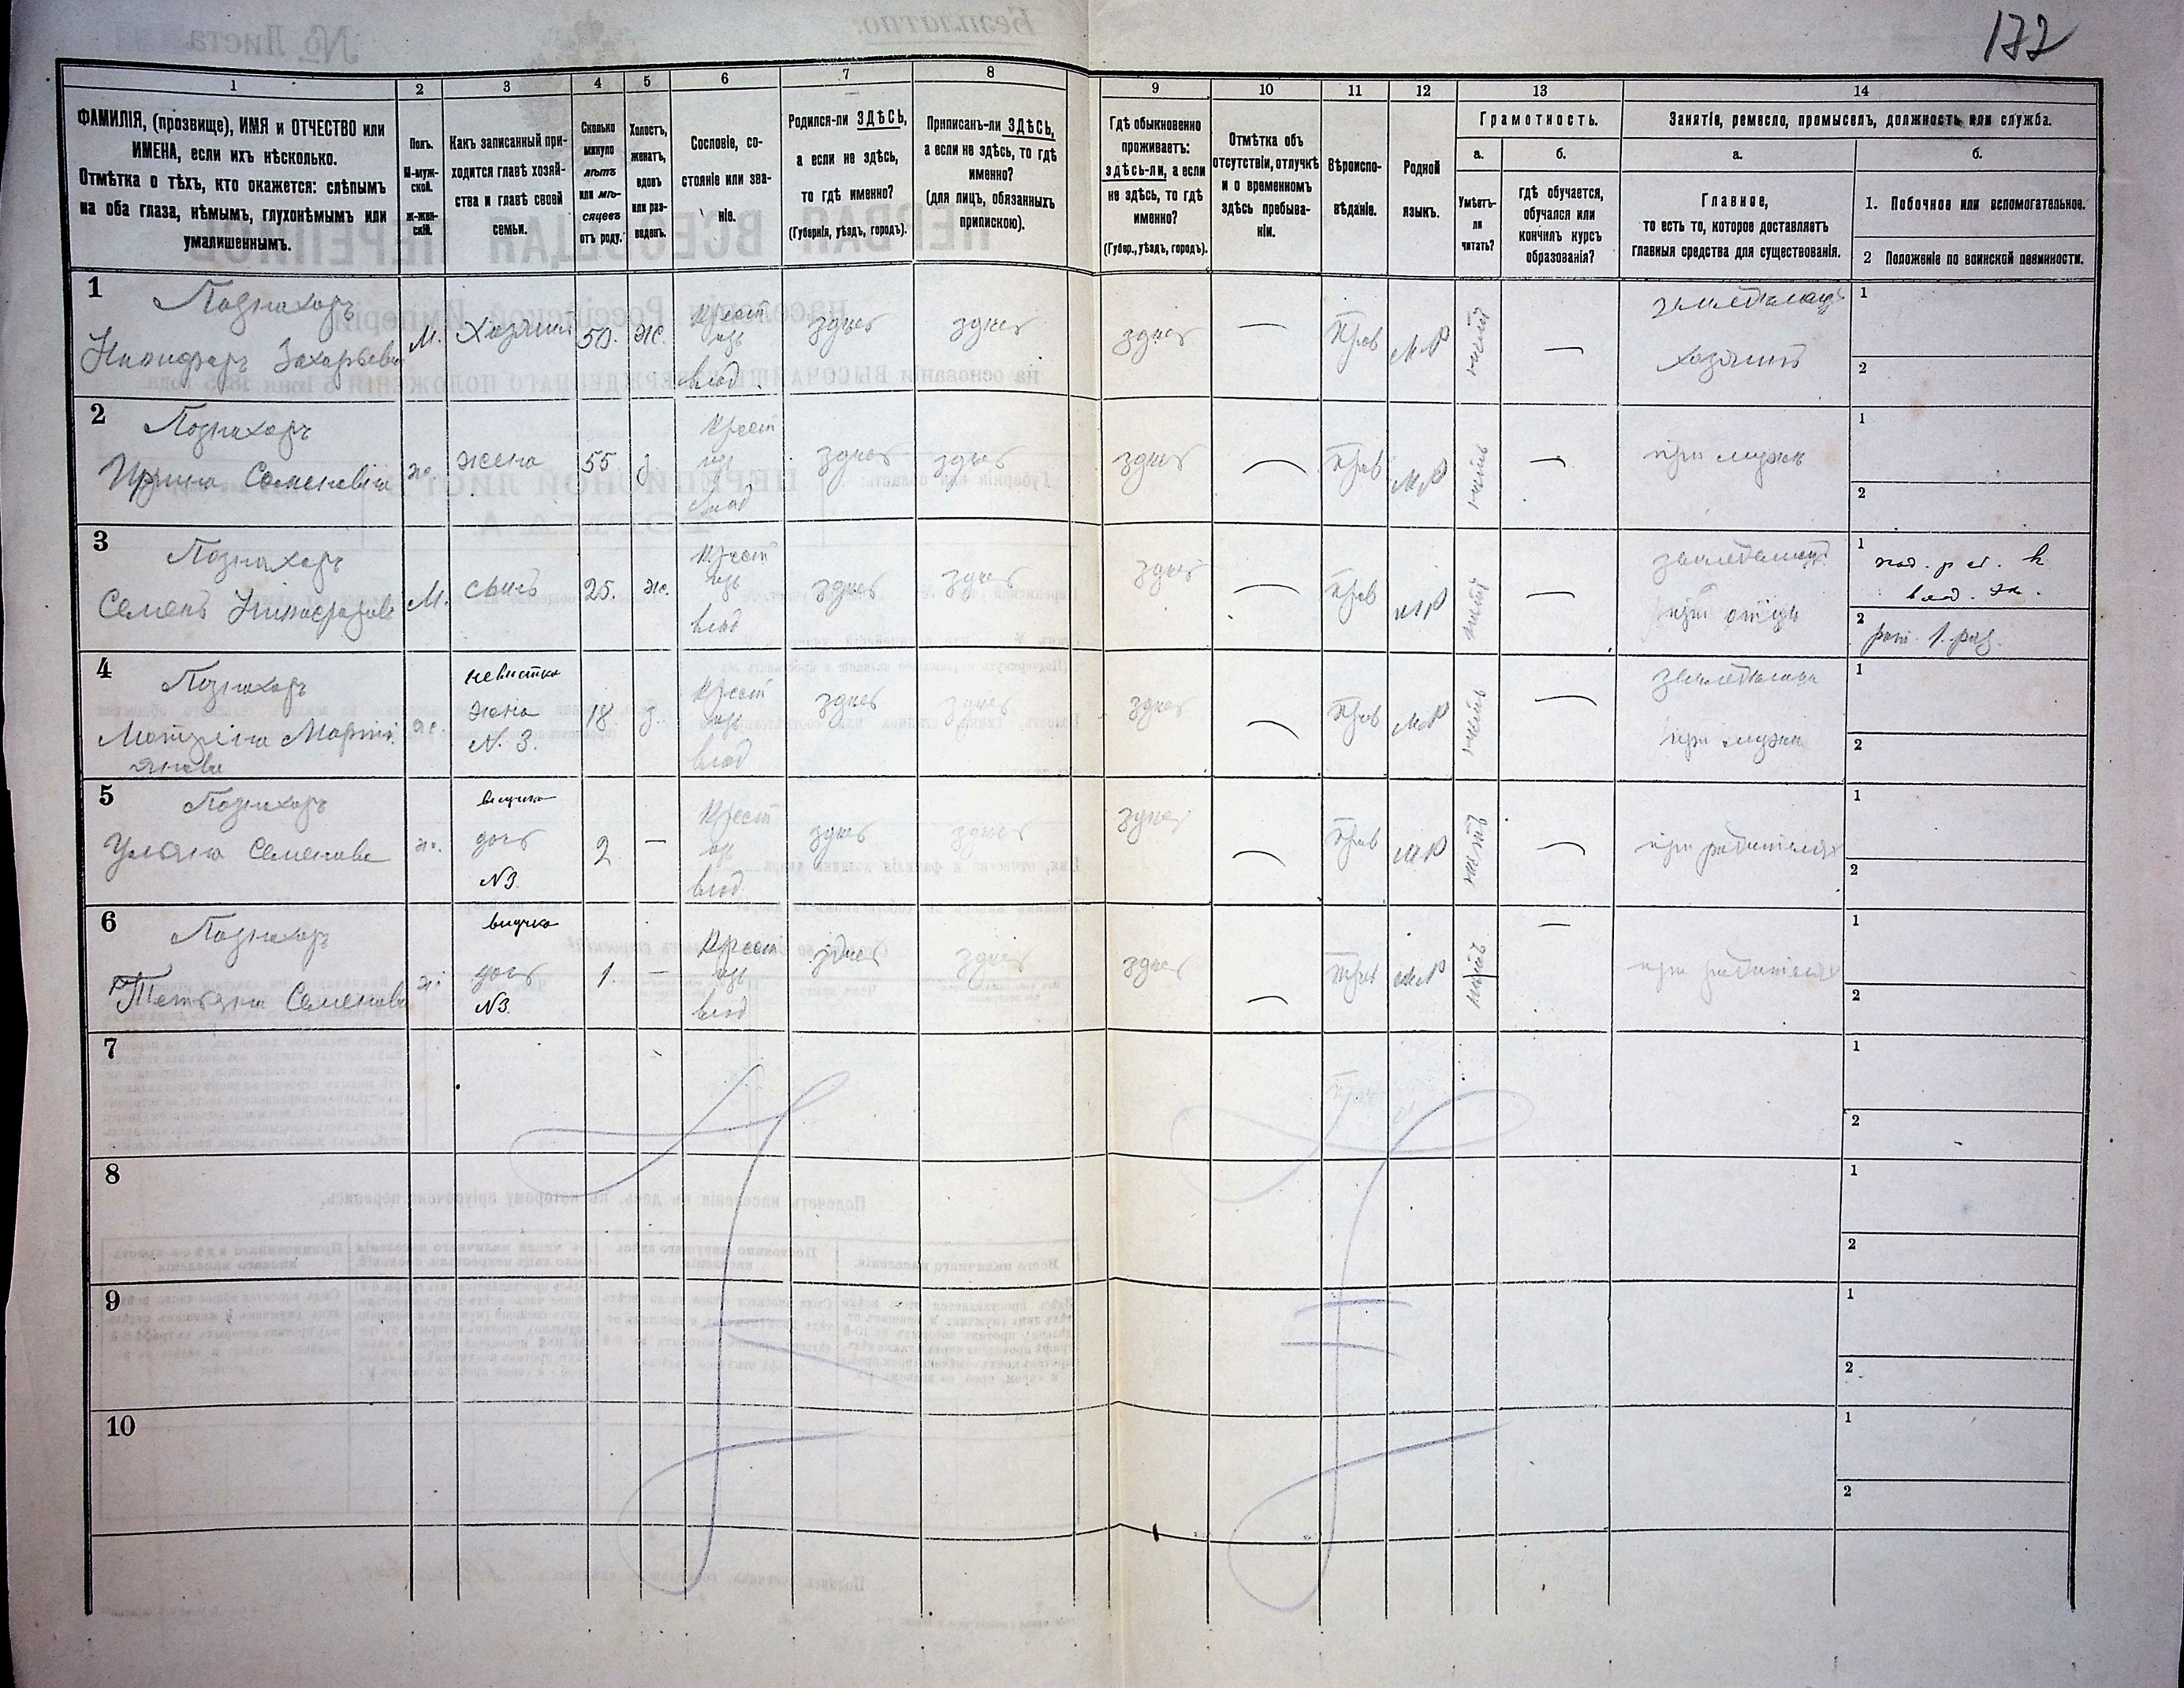 172
1
2
3
4
5
6
7
8
9
10
11
12
13
14
ФАМИЛІЯ, (прозвище), ИМЯ и ОТЧЕСТВО или
ИМЕНА, если ихъ нѣсколько.
Отмѣтка о тѣхъ, кто окажется: слѣпымъ
на оба глаза, нѣмымъ, глухонѣмымъ или
умалишеннымъ.
Полъ.
М-муж-
ской.
ж-жен-
скій.
Какъ записанный при-
ходится главѣ хозяй-
ства и главѣ своей
семьи.
Сколько
минуло
лѣтъ
или мѣ-
сяцевъ
отъ роду.
Холостъ,
женатъ,
вдовъ
или раз-
веденъ.
Сословіе, со-
стояніе или зва-
ніе.
Родился-ли ЗДѢСЬ,
а если не здѣсь,
то гдѣ именно?
(Губернія, уѣздъ, городъ).
Приписанъ-ли ЗДѢСЬ,
а если не здѣсь, то гдѣ
именно?
(для лицъ, обязанныхъ
припискою).
Гдѣ обыкновенно
проживаетъ:
здѣсь-ли, а если
не здѣсь, то гдѣ
именно?
(Губер., уѣздъ, городъ).
Отмѣтка объ
отсутствіи, отлучкѣ
и о временномъ
здѣсь пребыва-
ніи.
Вѣроиспо-
вѣданіе.
Родной
языкъ.
Грамотность.
а.
Умѣетъ-
ли
читать?
б.
гдѣ обучается,
обучался или
кончилъ курсъ
образованія?
Занятіе, ремесло, промыселъ, должность или служба.
а.
Главное,
то есть то, которое доставляетъ
главныя средства для существованія.
б.
1. Побочное или вспомогательное.
2 Положеніе по воинской повинности.
1
Познахоръ
Никифоръ Захарьевъ
М.
Хозяинъ
50.
ж.
Крест
изъ
влад.
здесь
здесь
здесь
—
Прав
МР
нѣтъ
—
хозяинъ
1
2
2
Познахоръ
Ирина Семеновна
ж.
жена
55
з
Крест
изъ
влад
здесь
здесь
здесь
—
Прав
МР
нѣтъ
—
при мужѣ
1
2
3
Познахоръ
Семенъ Никифоровъ
М.
сынъ
25.
ж.
Крест
изъ
влад
здесь
здесь
здесь
—
Прав
МР
нѣтъ
—
при отцѣ
1
2
рат. 1. раз.
4
Познахоръ
невистка
жена
N. 3.
ж.
18.
з.
Крест
изъ
влад
здесь
здесь
здесь
—
Прав
МР
нѣтъ
—
при мужѣ
1
2
5
Познахоръ
Ульяна Семенова
ж.
внучка
дочь
N3.
2
—
Крест
изъ
влад
здесь
здесь
здесь
—
Прав
МР
нѣтъ
—
при родителях
1
2
6
Познахоръ
Татьяна Семенова
ж.
внучка
дочь
N3.
1.
—
Крест
изъ
влад
здесь
здесь
здесь
—
Прав
МР
нѣтъ
—
при родителях
1
2
7
1
2
8
1
2
9
1
2
10
1
2